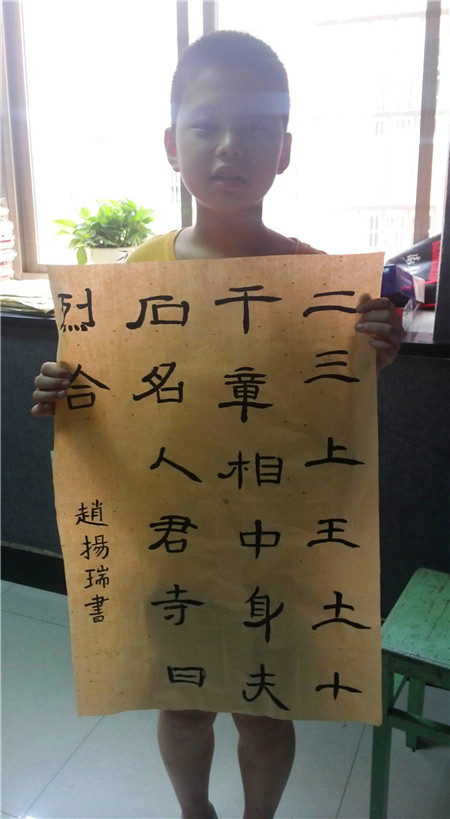 二三上王土十
干章相中身夫
石名人君寺曰
烈合
趙揚瑞書